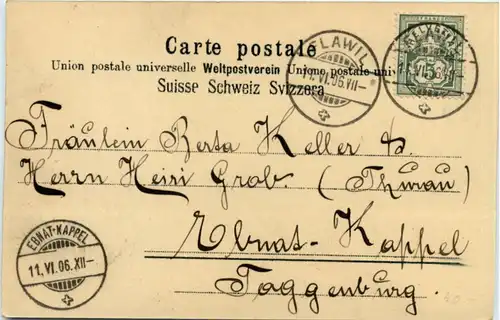 Carte postale
Union postale universelle Weltpostverein Unione postale univ
Suisse Schweiz Svizzera
FLAWIL
VI.06.VII-
5
Fräulein Berta Keller &.
Herrn Heiri Grob. (Thurau)
Ebnat-Kappel
Toggenburg.
EBNAT-KAPPEL
11.VI.06.XII-